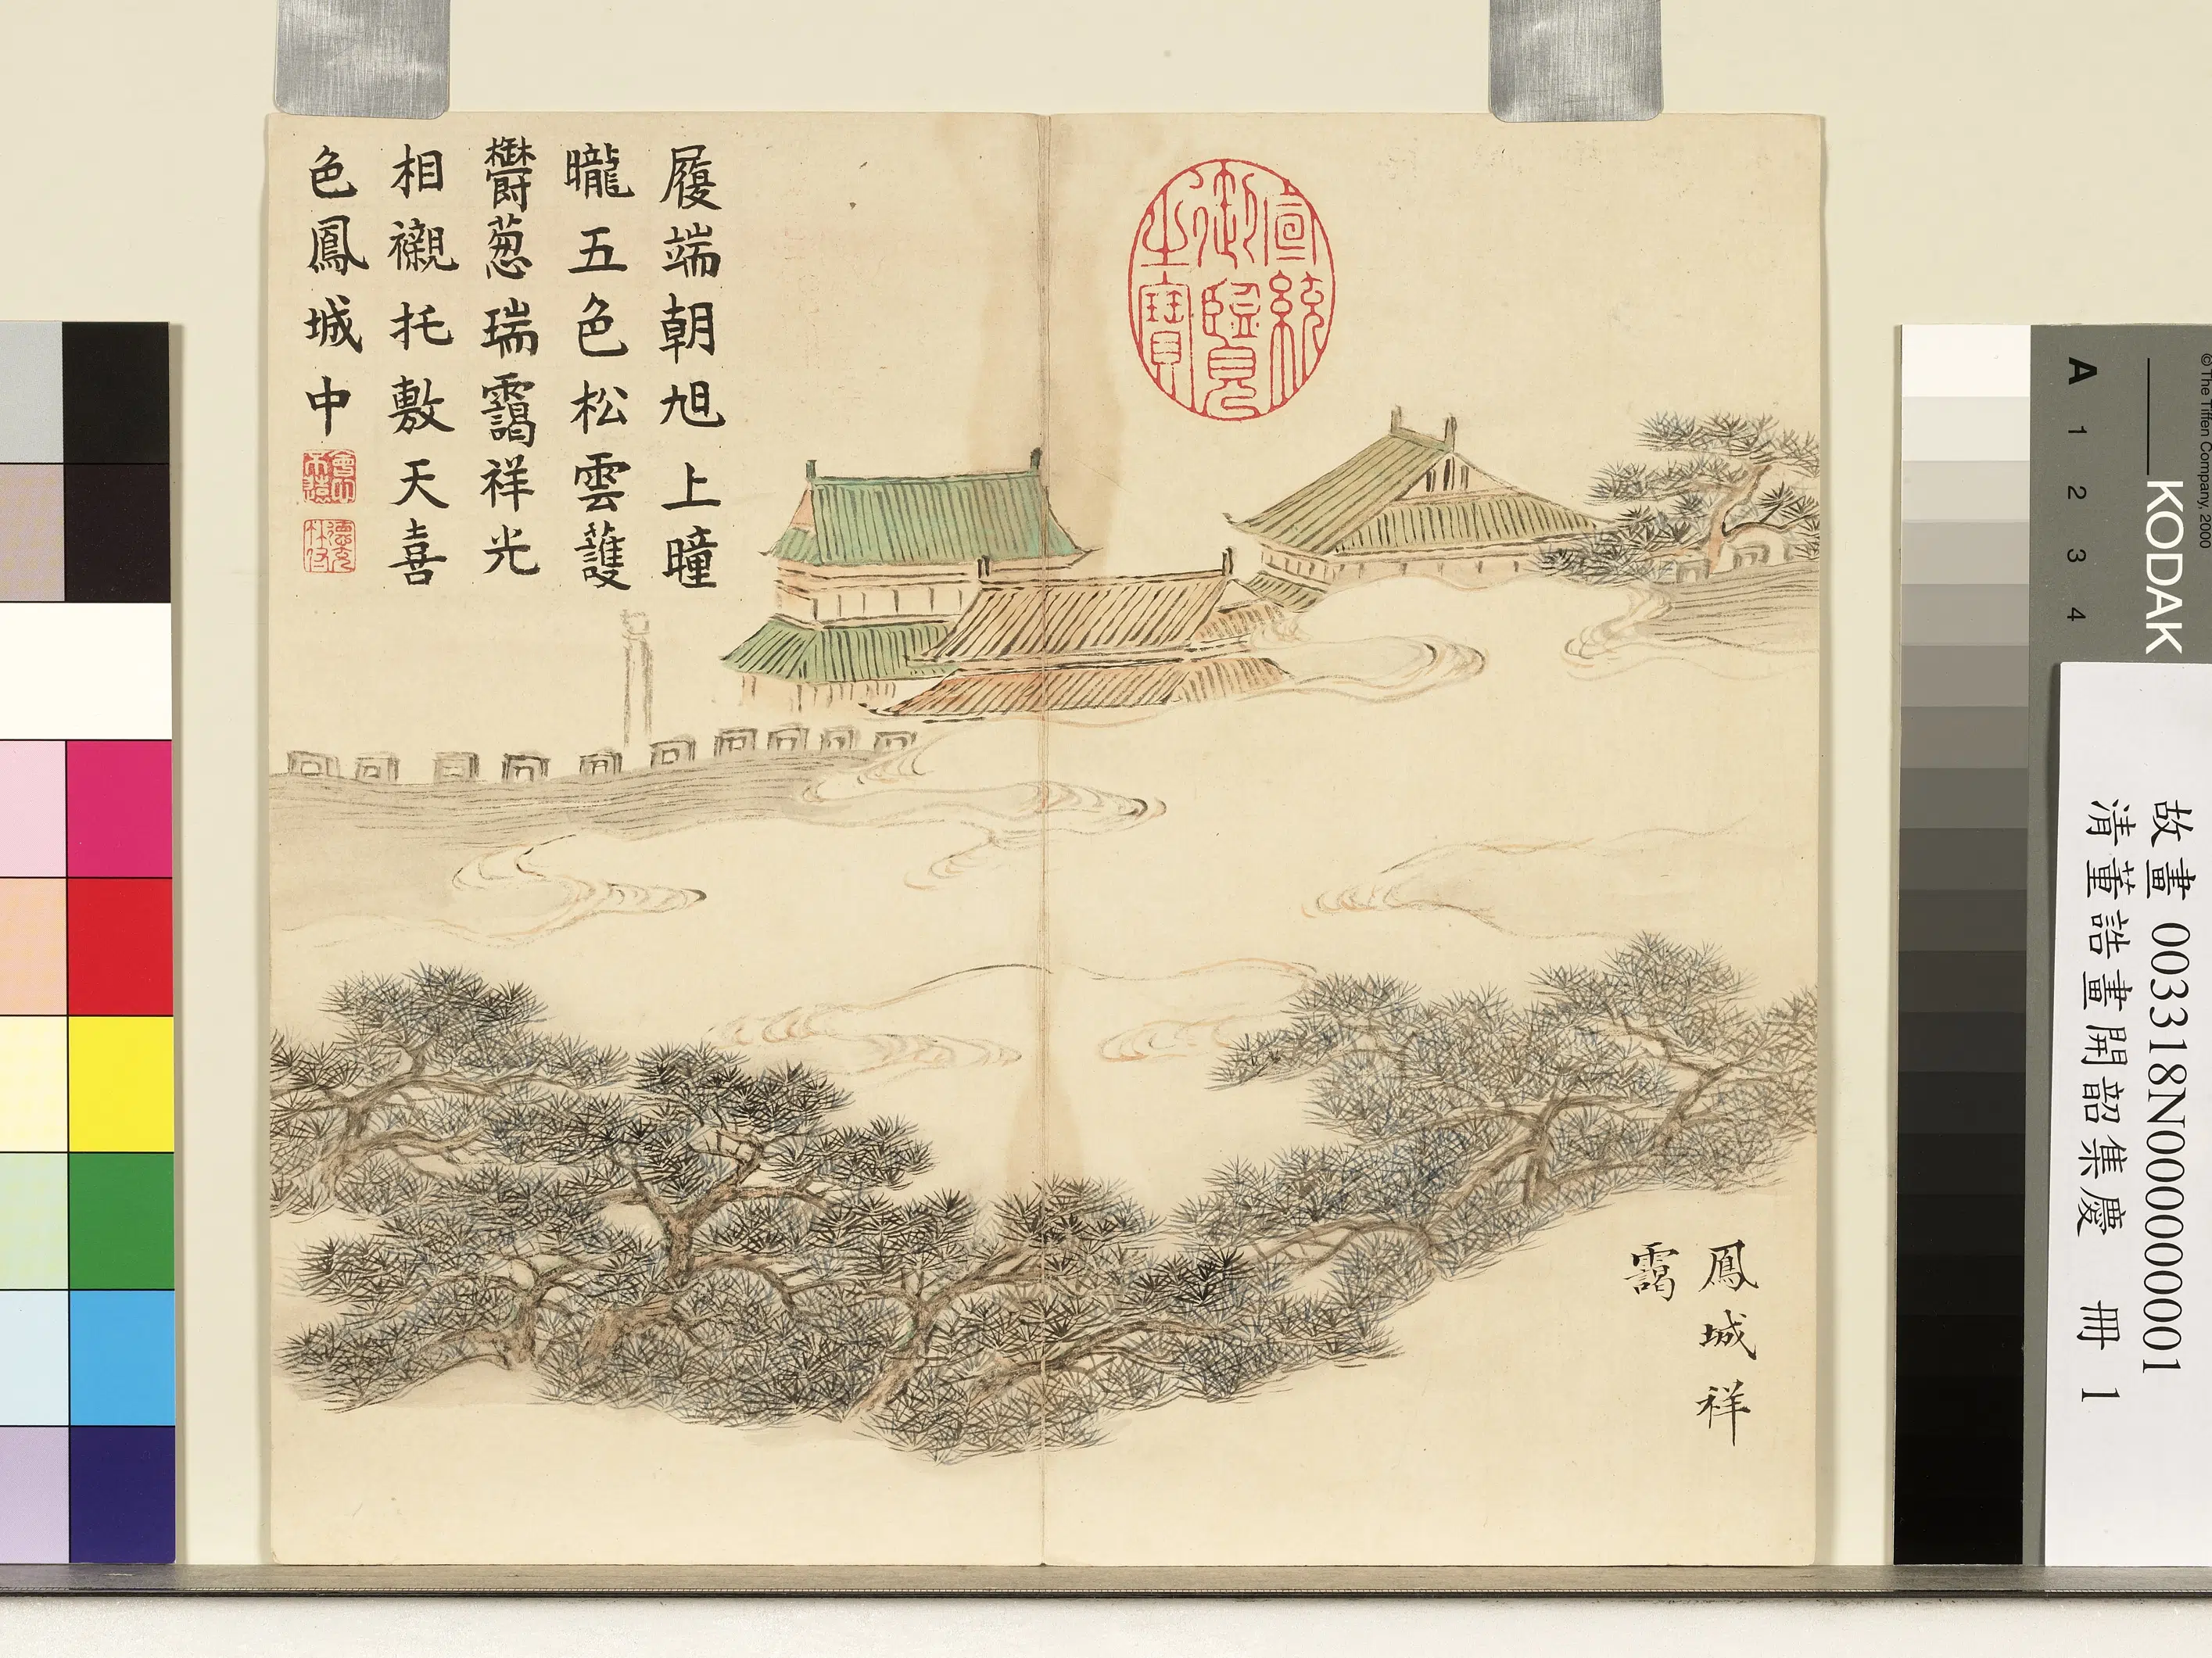 履端朝旭上曈
曨五色松雲護
鬱葱瑞靄祥光
相襯托敷天喜
色鳳城中
會心不遠
德充符
宣統御覽之寶
鳳城祥
靄
故畫 003318N000000001
清董誥畫開韶集慶 冊 1
© The Tiffen Company, 2000
KODAK
A 1 2 3 4